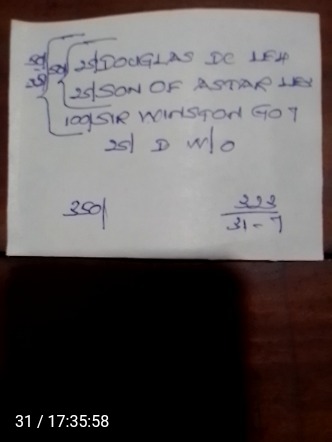 50/ 50/ 25/ DOUGLAS DC LEH
25/ 25/ SON OF ASTAR LEH
100/ SIR WINSTON GO 7
25/ D W/O
350/
222
31-7
31 / 17:35:58